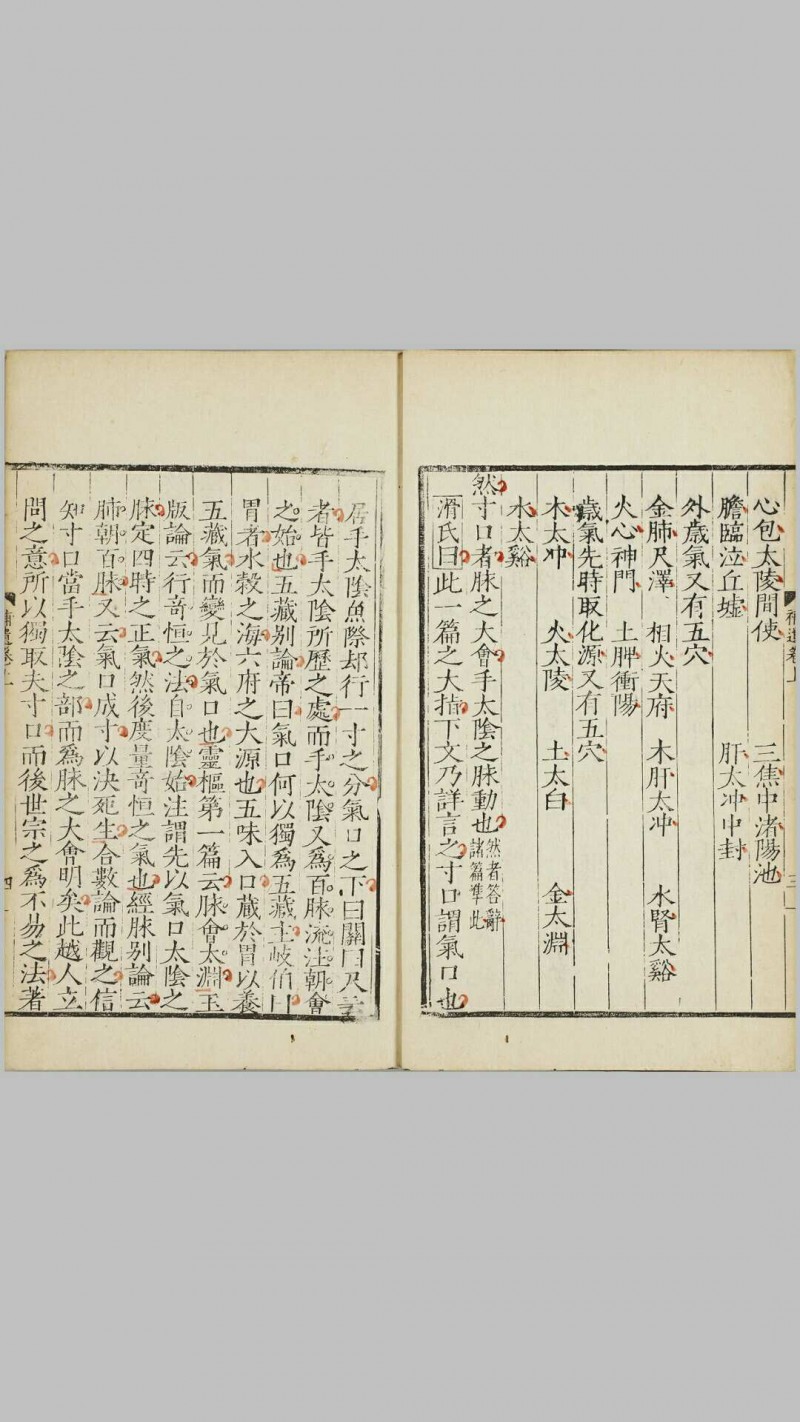 心包太陵間使　三焦中渚陽池
膽臨泣丘墟　肝太冲中封
外歳氣又有五穴
金肺尺澤　相火天府　木肝太冲　水腎太谿
火心神門　土脾衝陽
歳氣先時取化源又有五穴
木太冲　火太陵　土太白　金太淵
水太谿
然寸口者脉之大會手太陰之脉動也然者荅辭諸篇準此
滑氏曰此一篇之大指下文乃詳言之寸口謂氣口也
居手太陰魚際却行一寸之分氣口之下曰關曰尺
者皆手太陰所歷之處而手太陰又為百脉流注朝會
之始也五藏别論帝曰氣口何以獨為五藏主岐伯曰
胃者水榖之海六府之大源也五味入口藏於胃以養
五藏氣而變見於氣口也靈樞第一篇云脉會太淵玉
版論云行奇恒之法自太陰始注謂先以氣口太陰之
脉定四時之正氣然後度量奇恒之氣也經脉别論云
肺朝百脉又云氣口成寸以决死生合數論而觀之信
知寸口當手太陰之部而為脉之大會明矣此越人立
問之意所以獨取夫寸口而後世宗之為不易之法著
補遺卷上
三
四